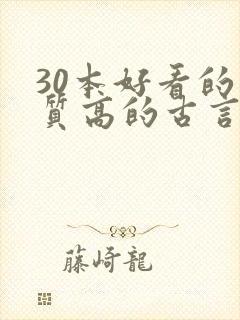 30本好看的
质高的古言
藤崎龍